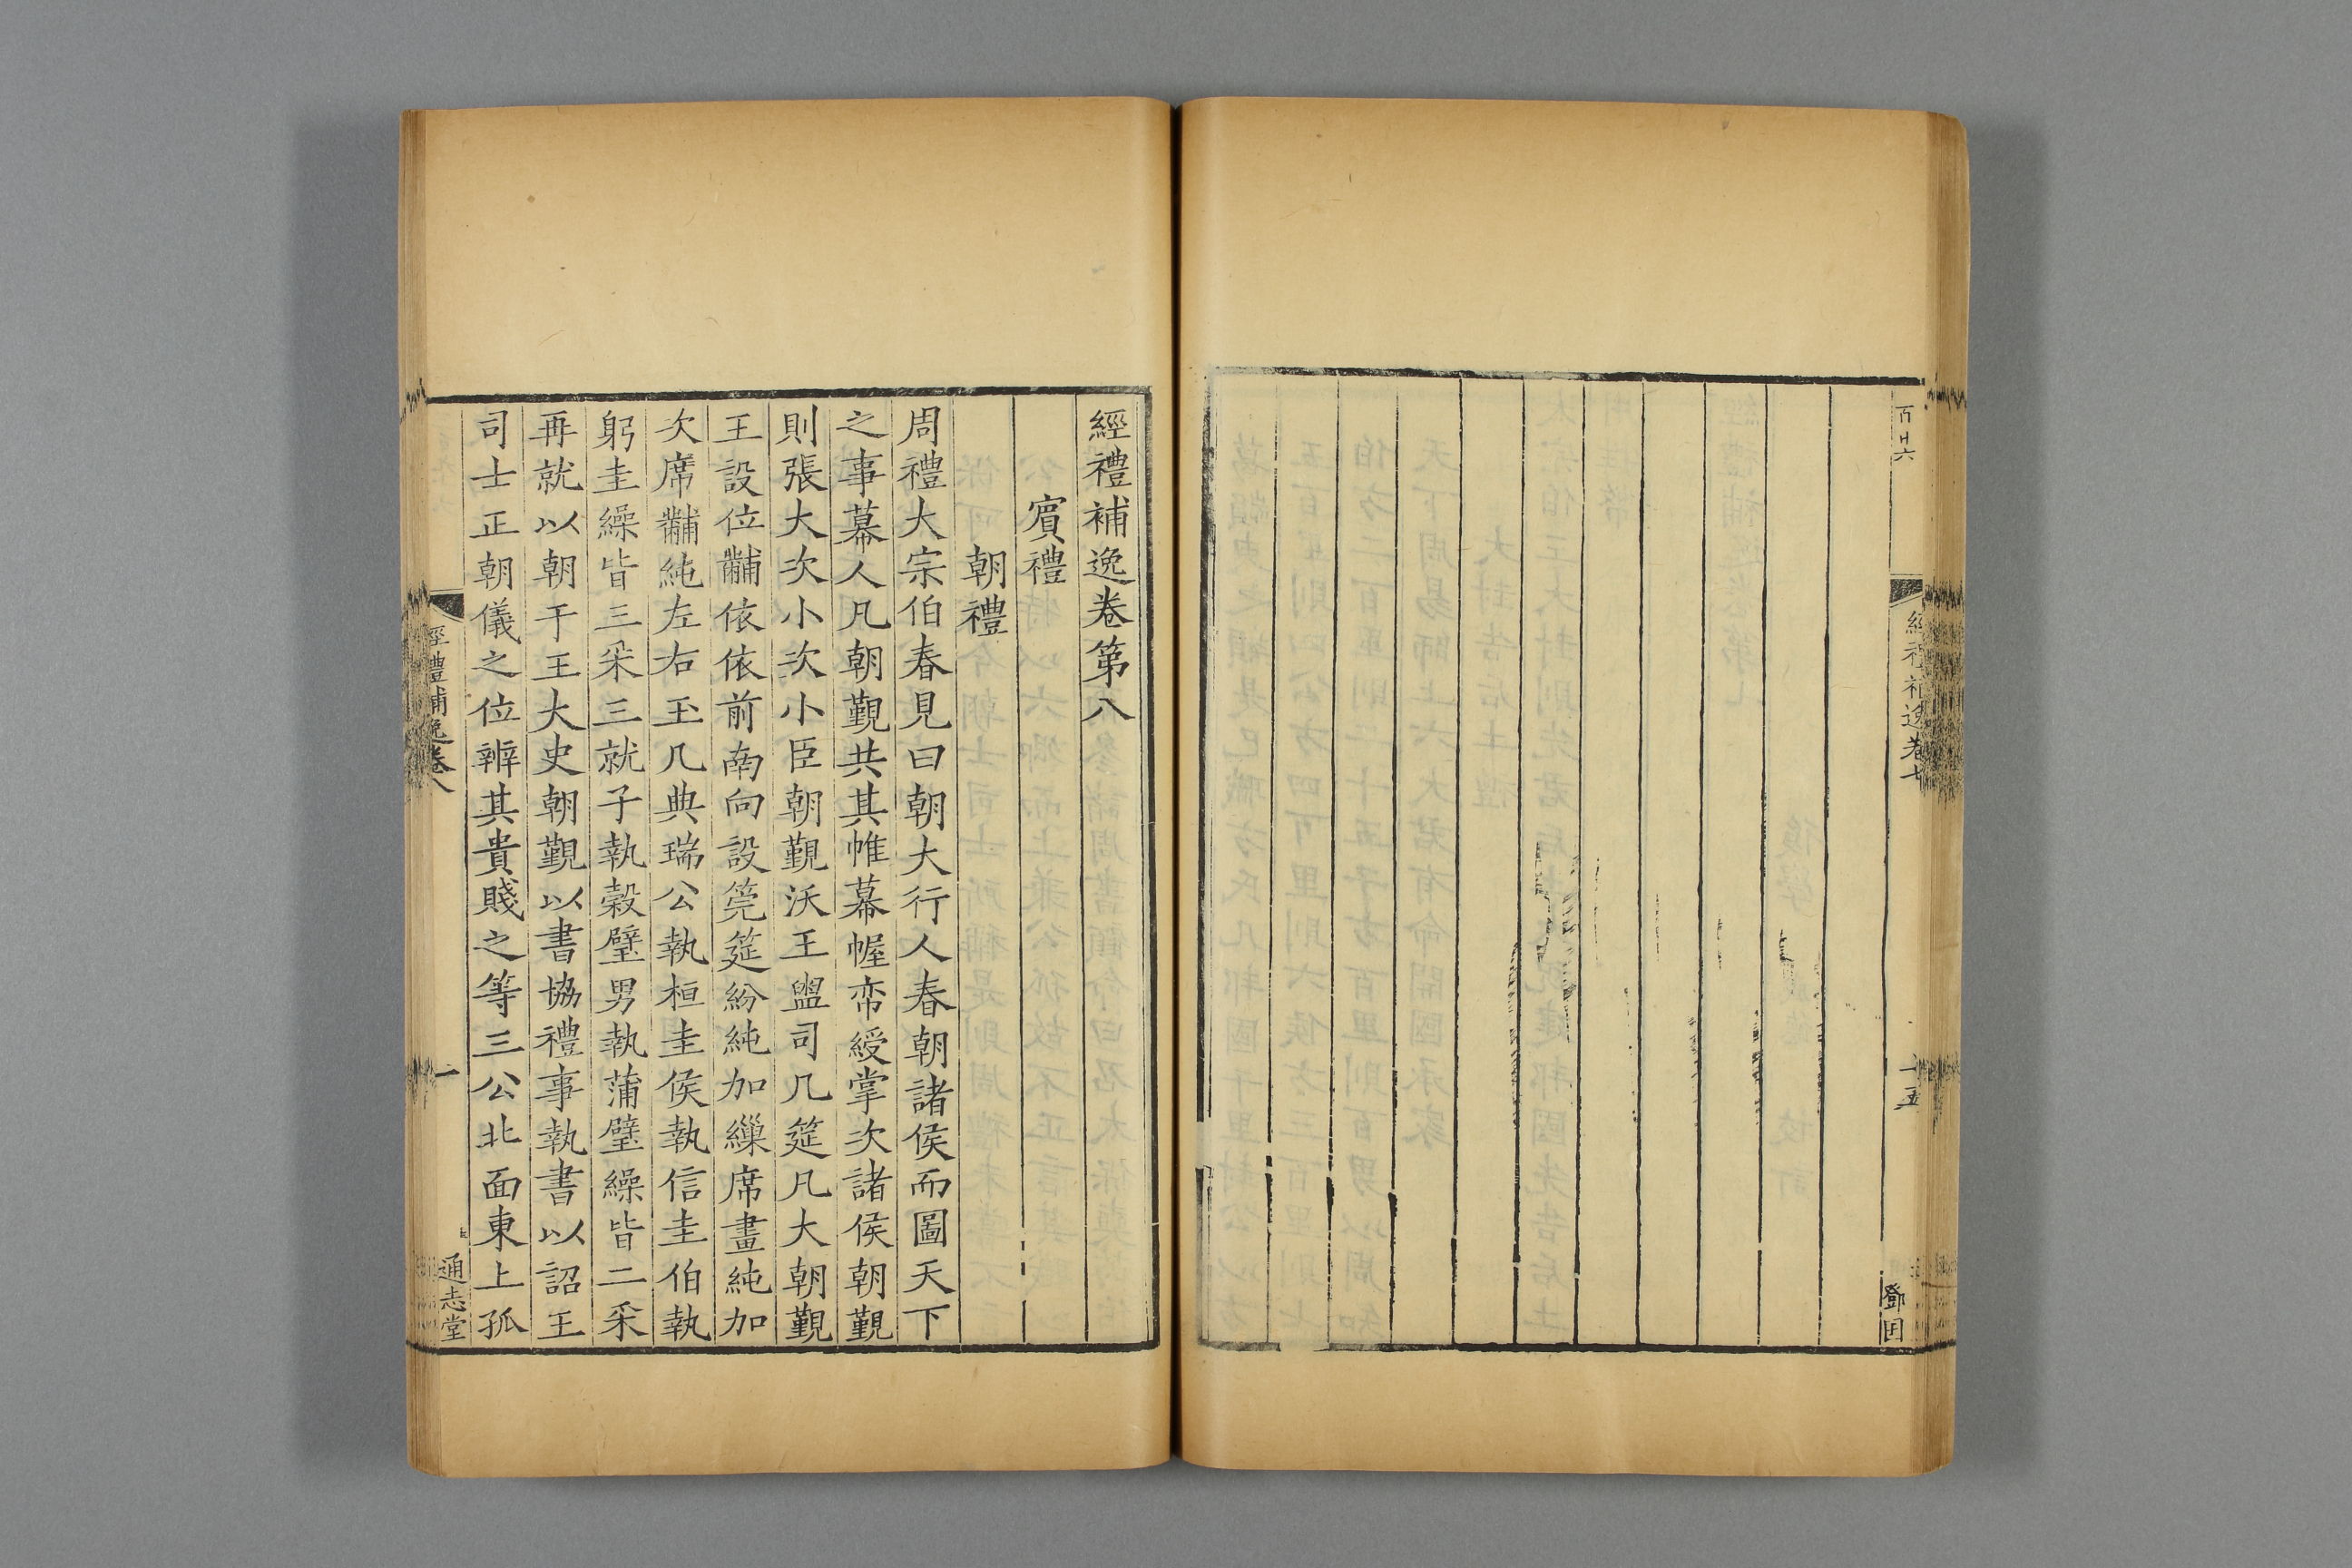 百廿六
經禮補逸卷七
十五
鄧因
經禮補逸卷第八
賔禮
朝禮
周禮大宗伯春見曰朝大行人春朝諸侯而圖天下
之事幕人凡朝覲共其帷幕幄帟綬掌次諸侯朝覲
則張大次小次小臣朝覲沃王盥司几筵凡大朝覲
王設位黼依依前南向設筦筵紛純加繅席畫純加
次席黼純左右玉几典瑞公執桓圭侯執信圭伯執
躬圭繰皆三采三就子執榖璧男執蒲璧繰皆二采
再就以朝于王大史朝覲以書協禮事執書以詔王
司士正朝儀之位辨其貴賤之等三公北面東上孤
經禮補逸卷八
一
通志堂